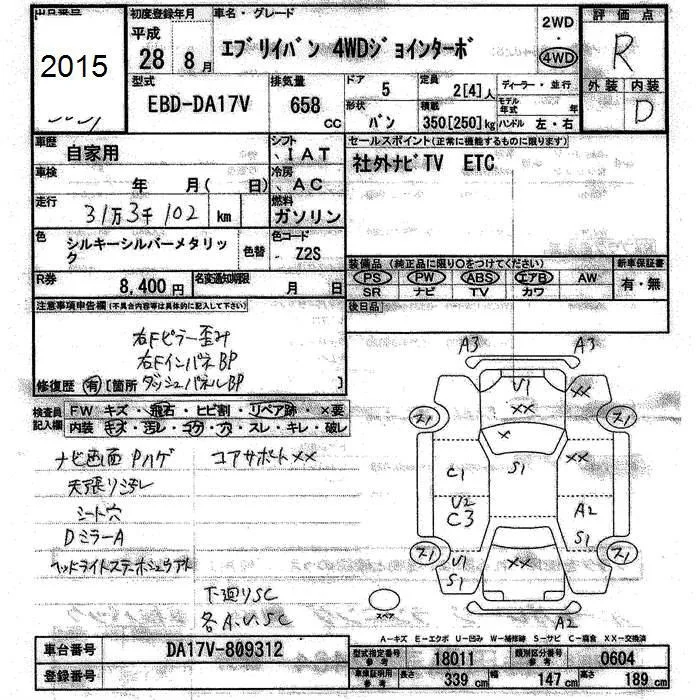 2015
初度登録年月
平成
28 8月
車名・グレード
エブリイバン 4WDジョインターボ
2WD
4WD
評価点
R
外装 内装
D
型式
EBD-DA17V
排気量
658 CC
ドア
5
形状
バン
定員
2[4]人
積載
350[250]kg
ディーラー・並行
モデル年式 年
ハンドル 左・右
車歴
自家用
シフト
IAT
車検
年 月( 日)
冷房
AC
走行
31万3千102 km
燃料
ガソリン
色
シルキーシルバーメタリック
色替
色コード
Z2S
R券
8,400円
名変通知期限
月 日
セールスポイント(正常に機能するものに限ります)
社外ナビTV ETC
装備品 (純正品に限り○をつけてください)
PS PW ABS エアB AW
SR ナビ TV カワ
新車保証書
有・無
後日品
注意事項申告欄(不具合内容等は具体的に記入して下さい)
右Fピラー歪み
右FインパネBP
修復歴 有 [箇所 ダッシュパネルBP ]
検査員記入欄
FW キズ・飛石・ヒビ割・リペア跡・×要
内装 キズ・汚レ・コゲ・穴・スレ・キレ・破レ
ナビ画面 Pハゲ コアサポートXX
天張り汚レ
シート穴
DミラーA
下廻りSC
各A.U.SC
A3 A3
U1 XX
XX
ス1 ス1
X
S1 XX
C1
U2
C3 A2
S1
ス1 ス1
U1
S1 XX
スペア
A2
A-キズ E-エクボ U-凹み W-補修跡 S-サビ C-腐食 XX-交換済
車台番号
DA17V-809312
登録番号
型式指定番号 参考
18011
類別区分番号 参考
0604
車庫証明用 参考
長さ 339 cm 幅 147 cm 高さ 189 cm